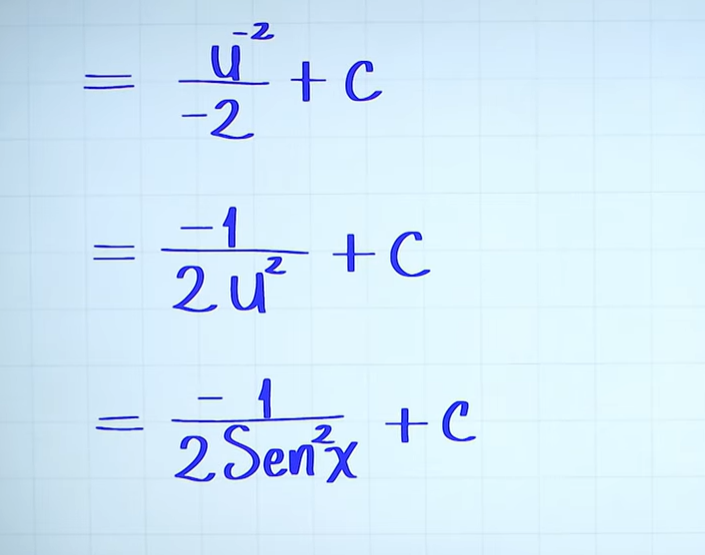 = u⁻²/-2 + C
= -1/2u² + C
= -1/2Sen²x + C